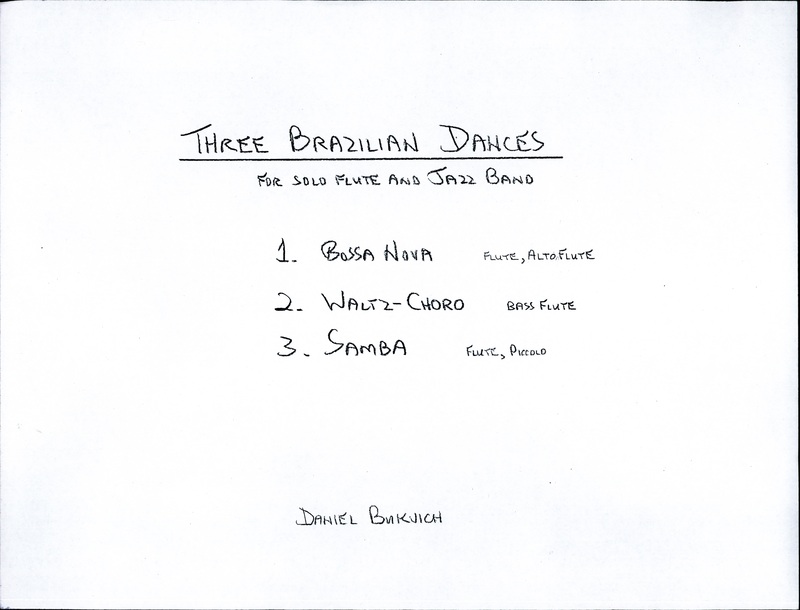 THREE BRAZILIAN DANCES
FOR SOLO FLUTE AND JAZZ BAND
1. BOSSA NOVA FLUTE, ALTO FLUTE
2. WALTZ-CHORO BASS FLUTE
3. SAMBA FLUTE, PICCOLO
DANIEL BUKVICH